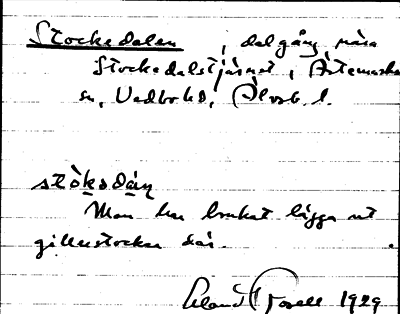 Stockedalen, dalgång nära
Stockedalstjärnet, Ärtemarks
sn, Vedbo hd, Älvsb. l.
stòksdáṇ
Man har brukat lägga ut
gillerstockar där.
Erland Rosell 1929